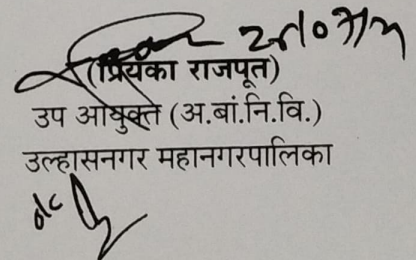 (प्रियंका राजपूत)
उप आयुक्त (अ.बां.नि.वि.)
उल्हासनगर महानगरपालिका